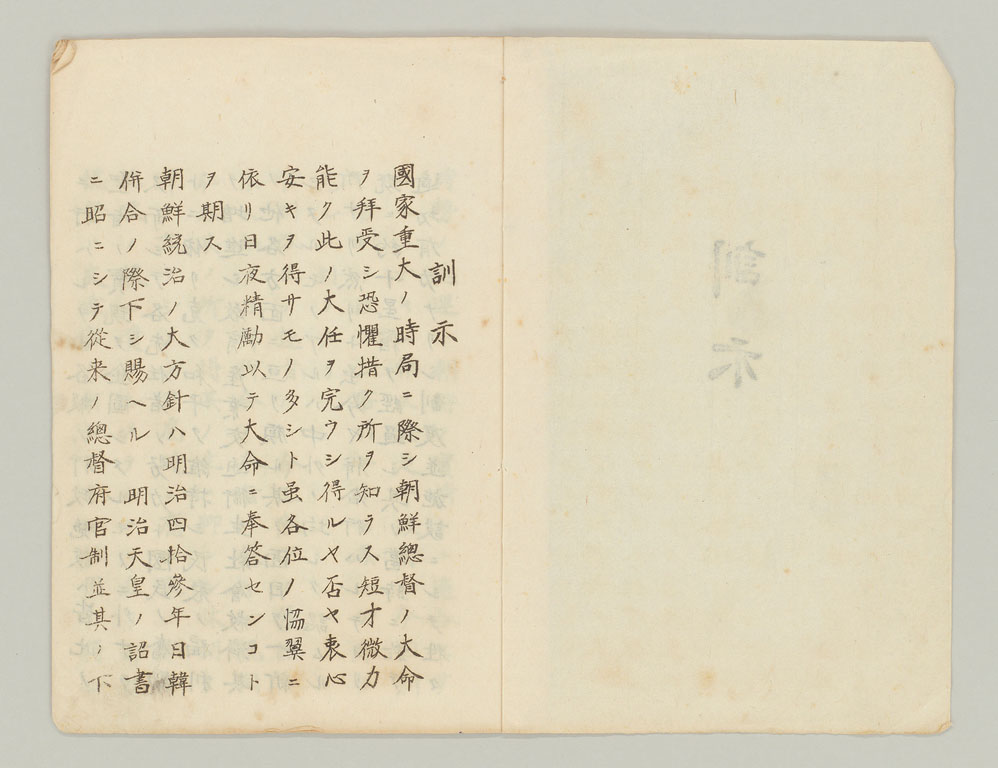 訓示
國家重大ノ時局ニ際シ朝鮮總督ノ大命
ヲ拜受シ恐懼措ク所ヲ知ラス短才微力
能ク此ノ大任ヲ完ウシ得ルヤ否ヤ衷心
安キヲ得サモノ多シト虽各位ノ協翼ニ
依リ日夜精勵以テ大命ニ奉答センコト
ヲ期ス
朝鮮統治ノ大方針ハ明治四拾參年日韓
併合ノ際下シ賜ヘル 明治天皇ノ詔書
ニ昭ニシテ從来ノ總督府官制並其ノ下